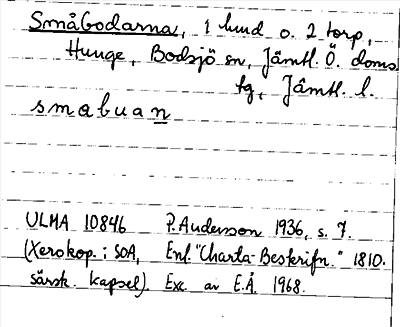 Småbodarna, 1 lund o. 2 torp,
Hunge, Bodsjö sn, Jämtl. Ö. doms
tg, Jämtl. l.
smabuan
ULMA 10846 P. Andersson 1936, s. 7.
(Xerokop. i SOA, Enl. "Charta-Beskrifn." 1810.
särsk. kapsel). Exc. av E.Å. 1968.